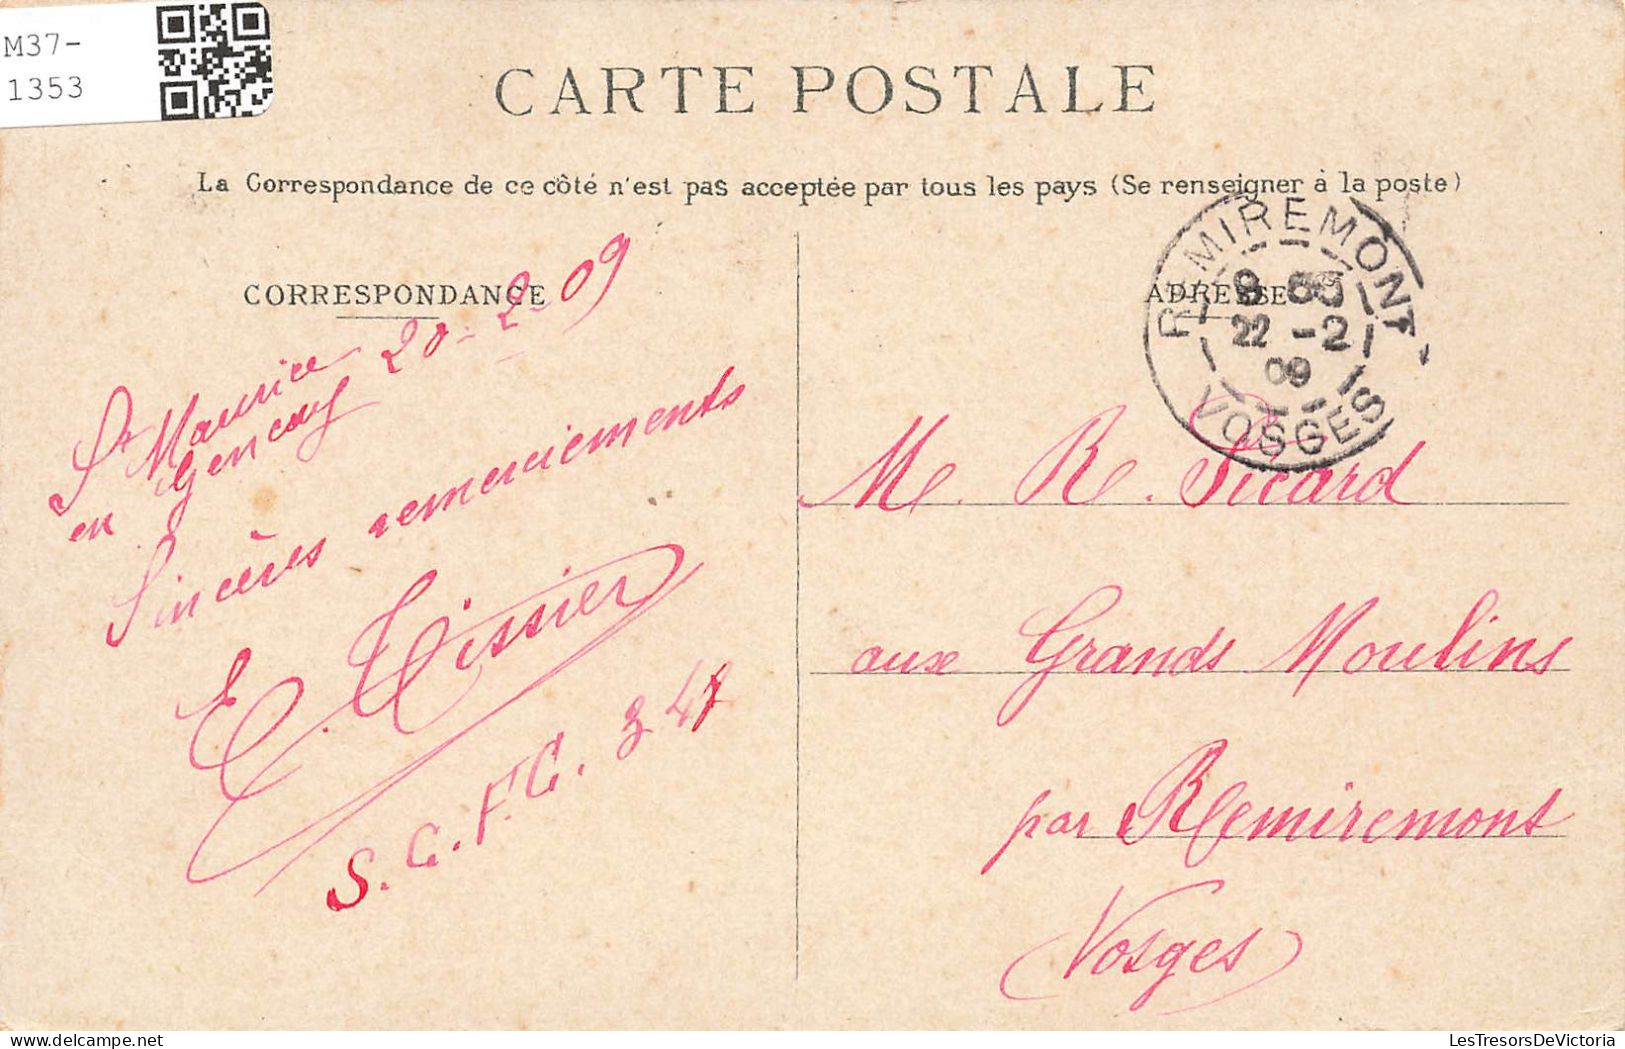 M37-
1353
CARTE POSTALE
La Correspondance de ce côté n'est pas acceptée par tous les pays (Se renseigner à la poste)
CORRESPONDANCE
ADRESSE
REMIREMONT
22 -2
09
VOSGES
St Maurice 20-2-09
en Gencay
Sincères remerciements
E. Tissier
S.C.F.C. 347
M R. Sicard
aux Grands Moulins
par Remiremont
(Vosges)
LesTresorsDeVictoria